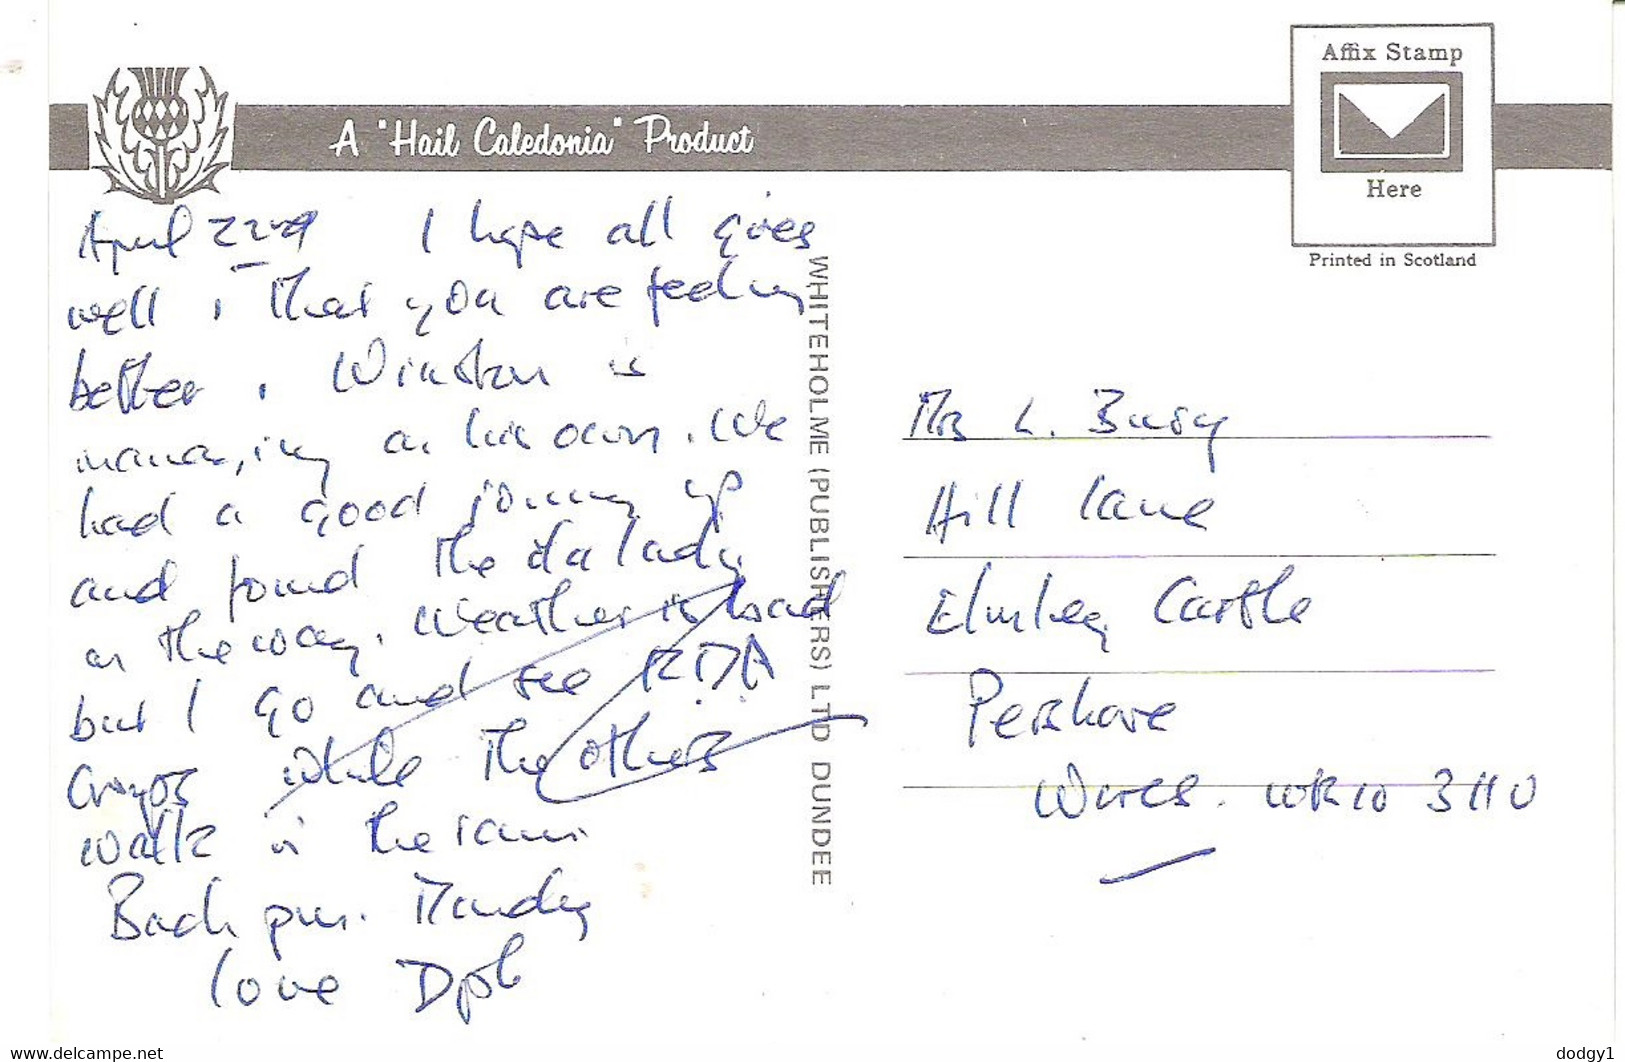 A "Hail Caledonia" Product
Affix Stamp
Here
Printed in Scotland
April 22nd I hope all goes
well, that you are feeling
better. Winston is
managing on his own. We
had a good journey up
and found the lady
on the way. Weather is bad
but I go and see R.D.A
Groups while the others
walk in the rain.
Back pm. Monday
love
WHITEHOLME (PUBLISHERS) LTD DUNDEE
Mrs L. Busy
Hill Lane
Elmley Castle
Pershore
Worcs. WR10 3HU
www.delcampe.net
dodgy1